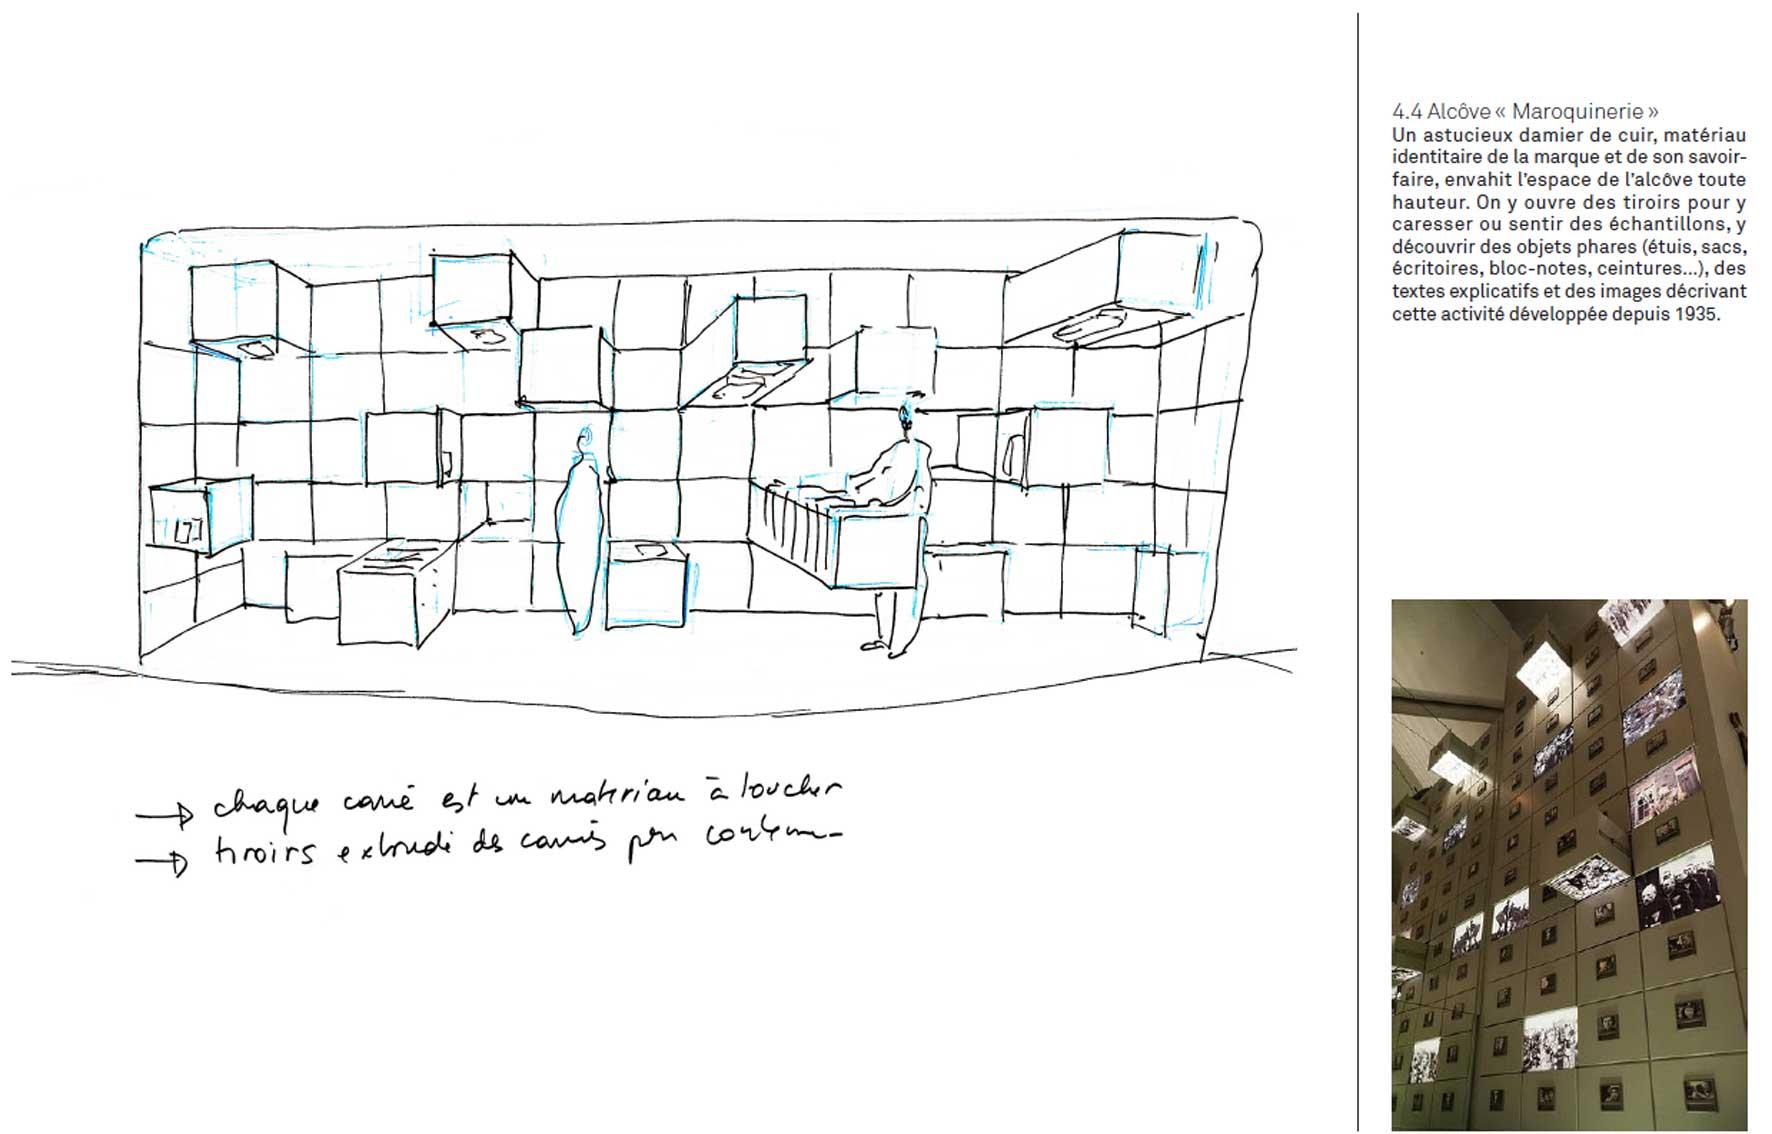 4.4 Alcôve « Maroquinerie »
Un astucieux damier de cuir, matériau
identitaire de la marque et de son savoir-
faire, envahit l’espace de l’alcôve toute
hauteur. On y ouvre des tiroirs pour y
caresser ou sentir des échantillons, y
découvrir des objets phares (étuis, sacs,
écritoires, bloc-notes, ceintures...), des
textes explicatifs et des images décrivant
cette activité développée depuis 1935.
→ chaque carré est un materiau à toucher
→ tiroirs extrudé des carrés